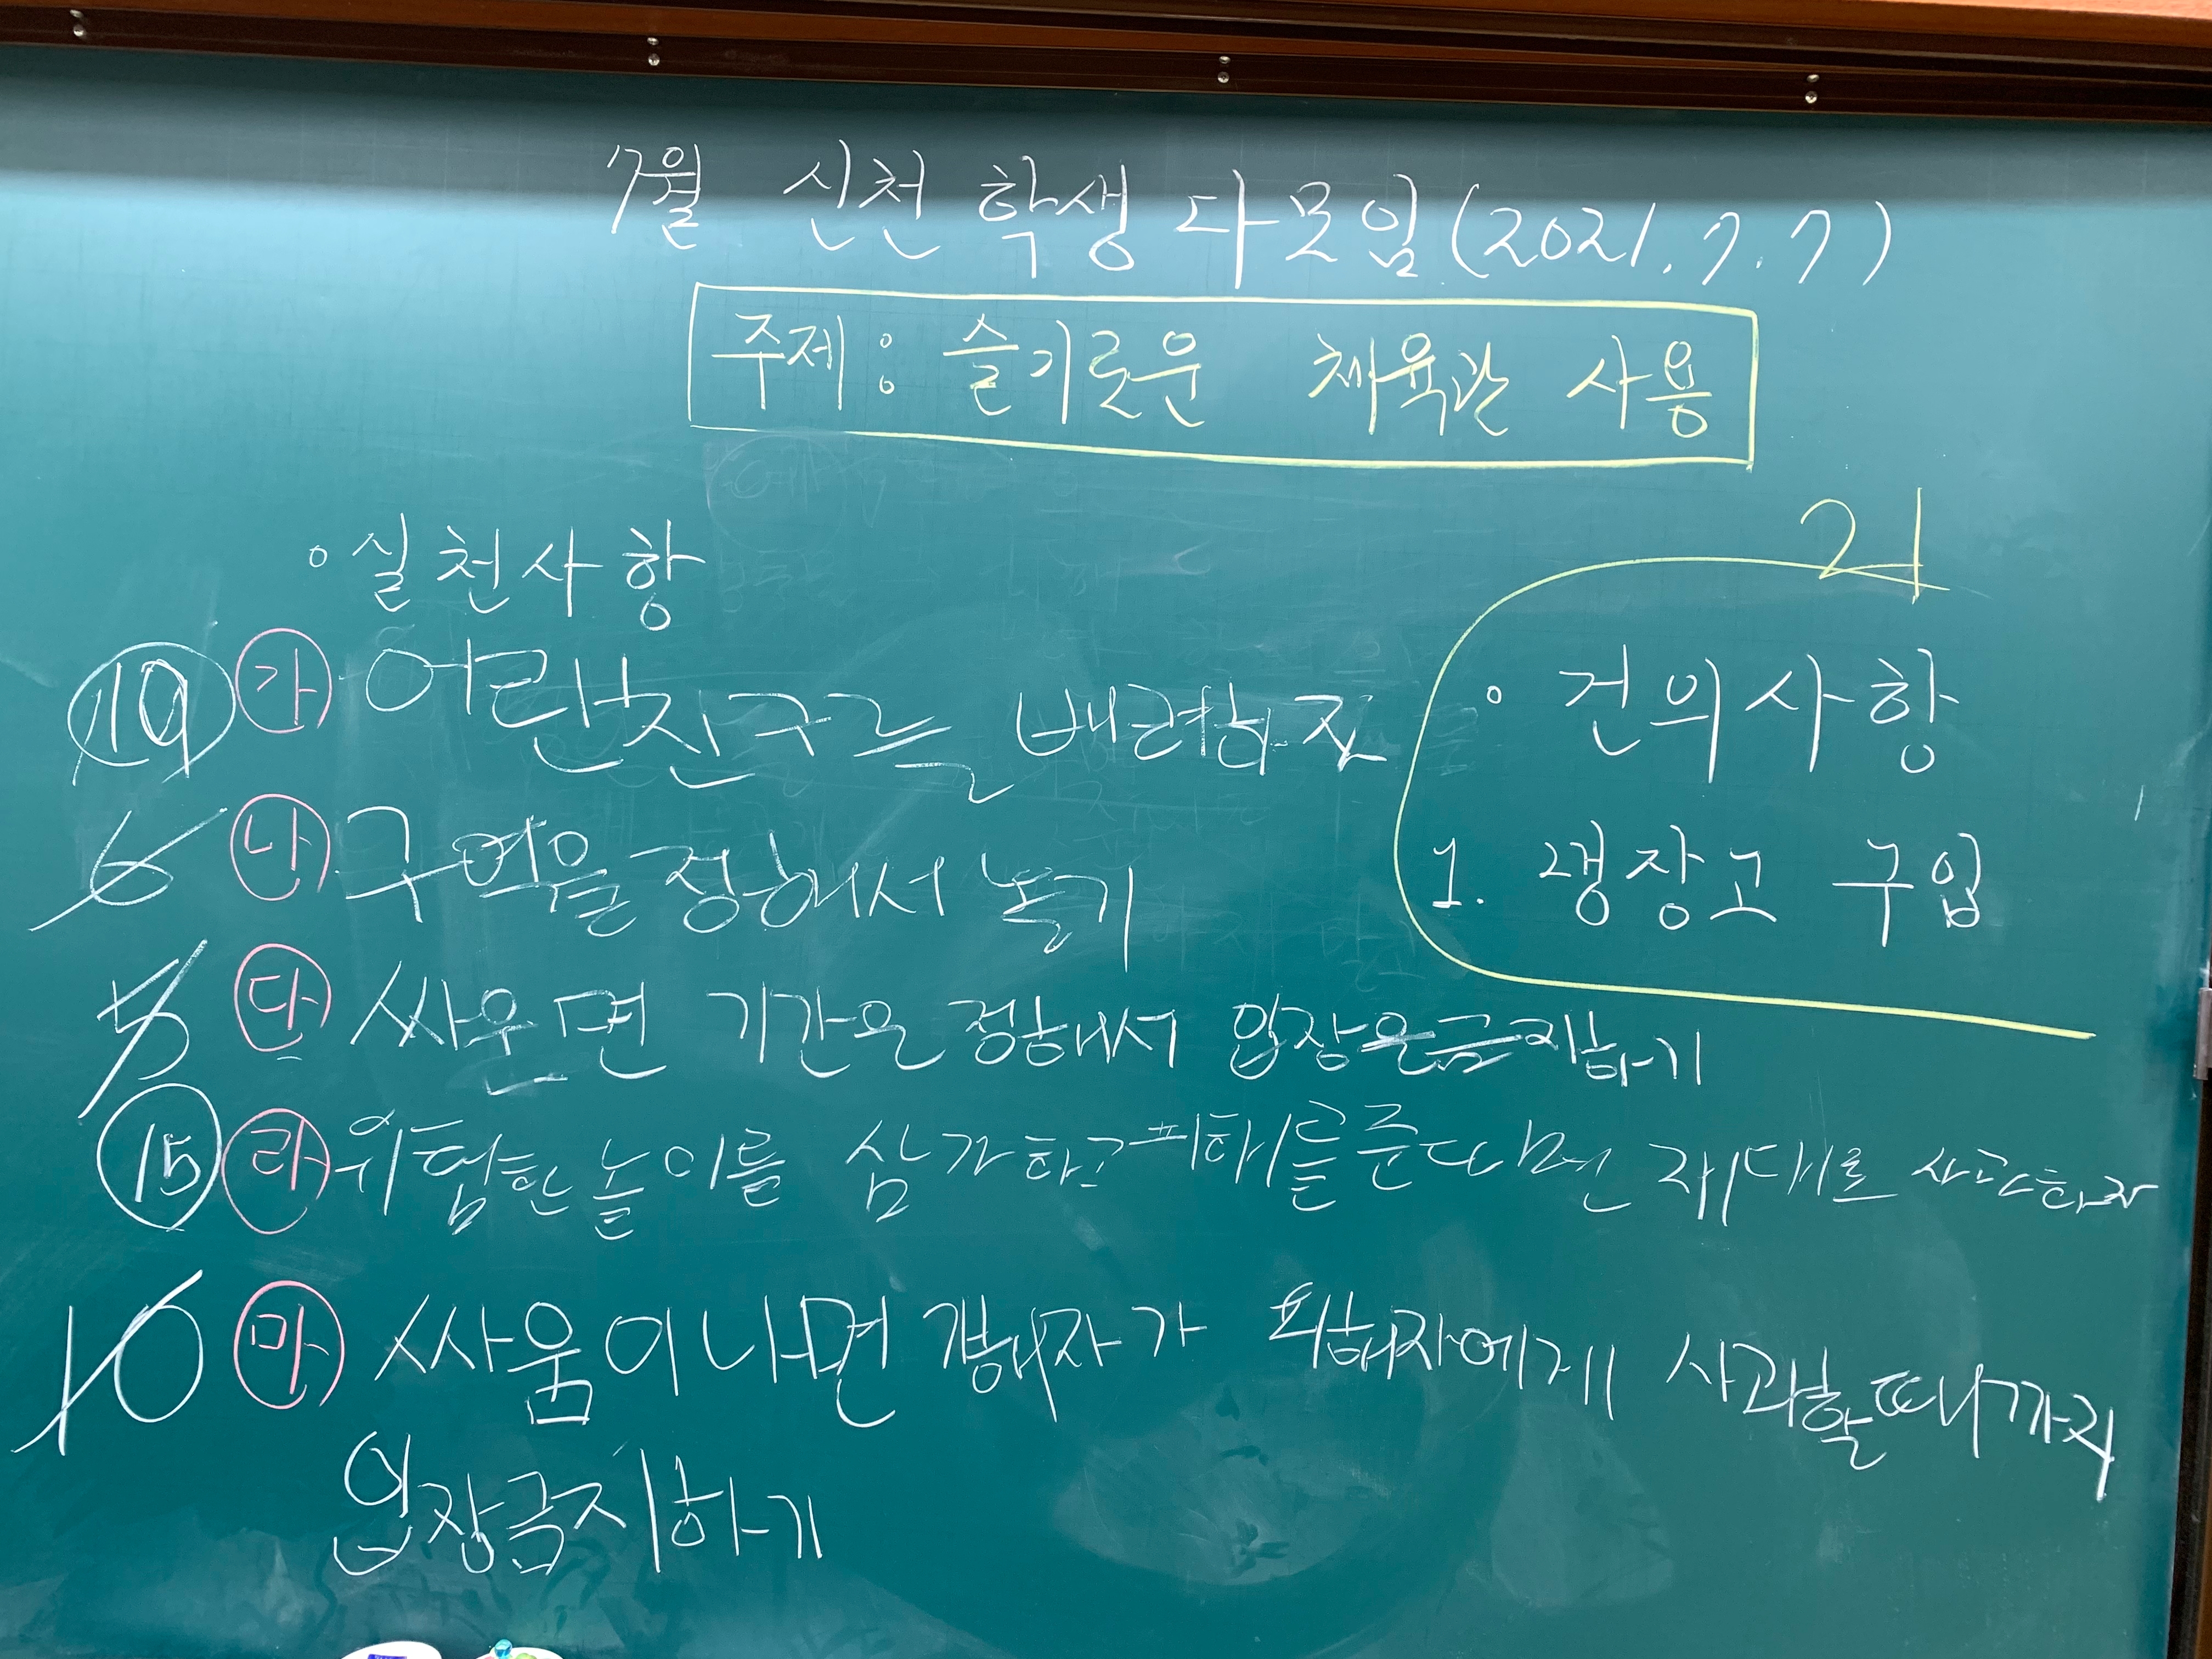 7월 신천 학생 다모임(2021.7.7)
주제: 슬기로운 체육관 사용
21
• 실천사항
19 가 어린친구를 배려하자
6 나 구역을 정해서 놀기
5 다 싸우면 기간은 정해서 입장은금지하기
15 라 위험한 놀이를 삼가하고 피해를준다면 제대로 사과하자
10 마 싸움이나면 갱해자가 피해자에게 사과할때까지
입장금지하기
• 건의사항
1. 갱장고 구입